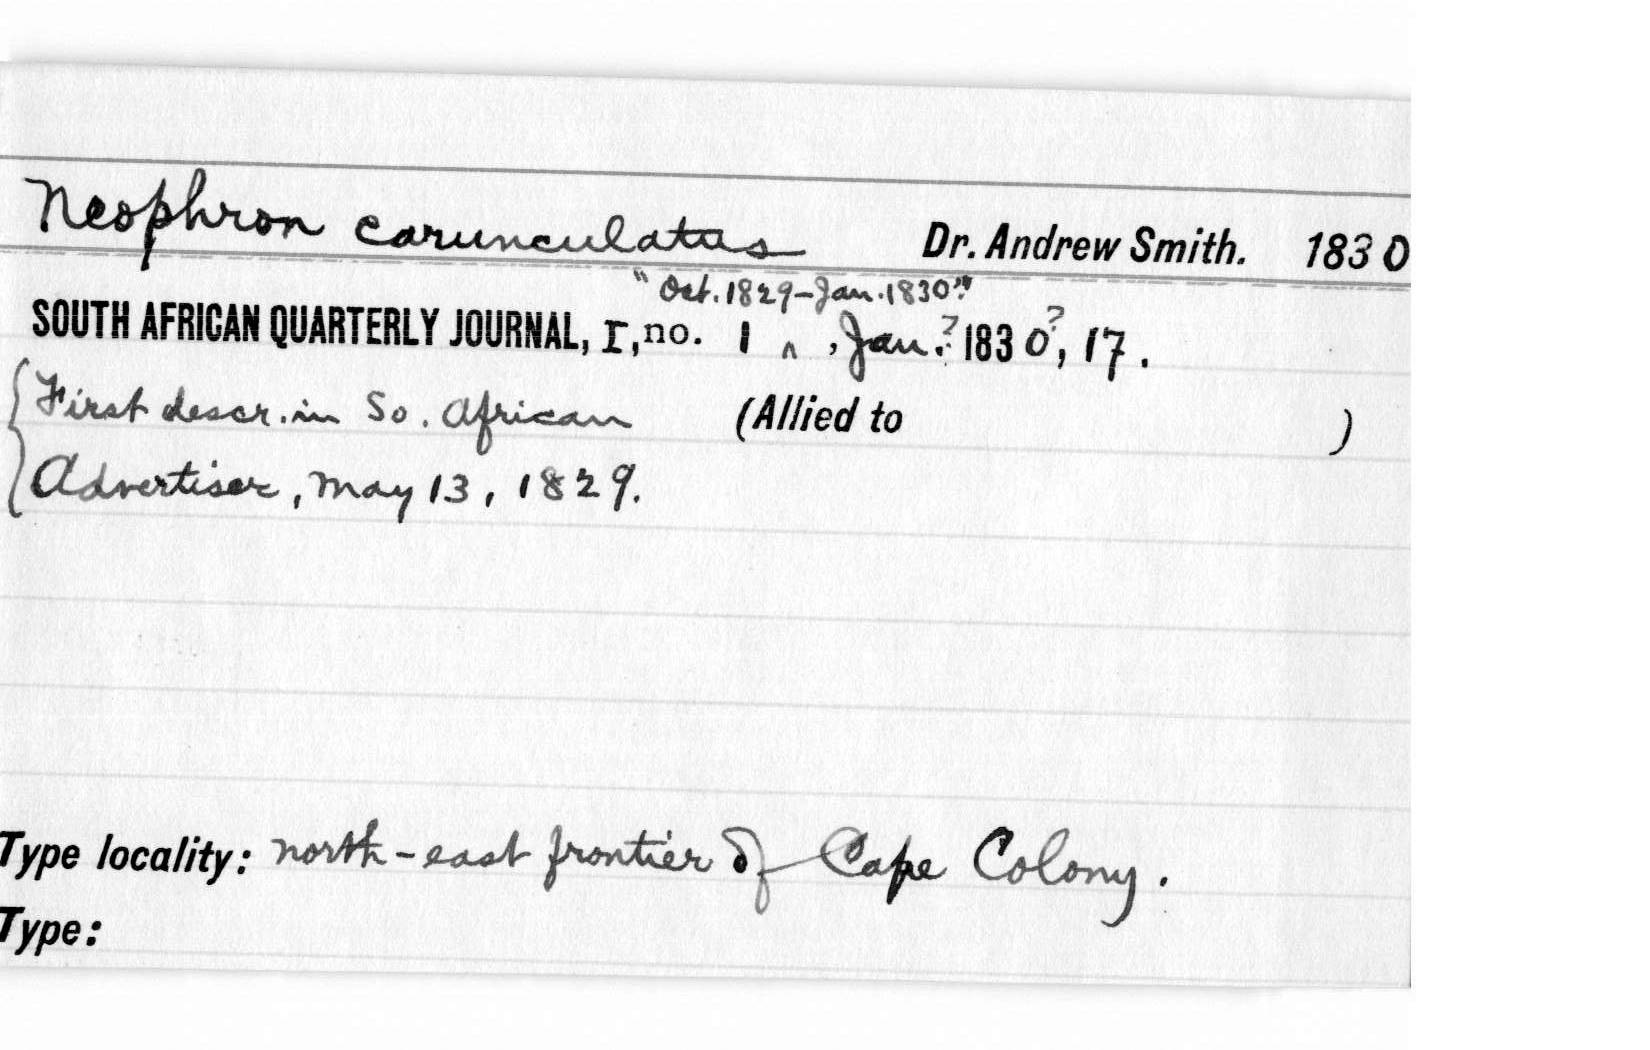 Neophron carunculatus Dr. Andrew Smith. 1830
"Oct. 1829-Jan. 1830?"
SOUTH AFRICAN QUARTERLY JOURNAL, I, no. 1 ^ , Jan.? 1830?, 17.
{First descr. in So. African (Allied to )
Advertiser, May 13, 1829.
Type locality: north-east frontier of Cape Colony.
Type: